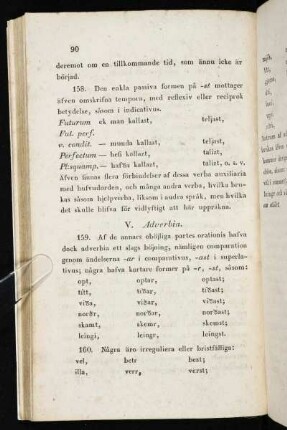 90
deremot om en tillkommande tid, som ännu icke är
börjad.
158. Den enkla passiva formen på -st mottager
äfven omskrifna tempora, med reflexiv eller reciprok
betydelse, såsom i indicativus.
Futurum ek man kallast, teljast,
Fut. perf.
v. condit. — munda kallast, — teljast,
Perfectum — hefi kallast, talizt,
Plsquamp. — hafða kallast, talizt, o. s. v.
Äfven finnas flera förbindelser af dessa verba auxiliaria
med hufvudorden, och många andra verba, hvilka bru-
kas såsom hjelpverba, liksom i andra språk, men hvilka
det skulle blifva för vidlyftigt att här uppräkna.
V. Adverbia.
159. Af de annars oböjliga partes orationis hafva
dock adverbia ett slags böjning, nämligen comparation
genom ändelserna -ar i comparativus, -ast i superla-
tivus; några hafva kortare former på -r, -st, såsom:
opt, optar, optast;
titt, tíðar, tíðast;
víða, víðar, víðast;
norðr, norðar, norðast;
skamt, skemr, skemst;
leingi, leingr, leingst.
160. Några äro irreguliera eller bristfälliga:
vel, betr bezt;
illa, verr, verst;